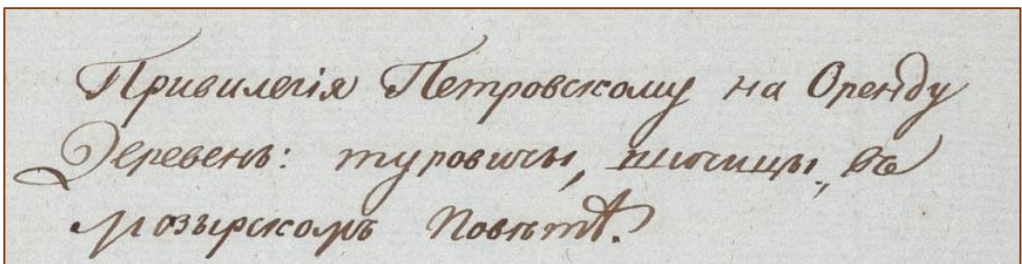 Привилегія Петровскому на Оренду
Деревень: туровичы, въ
мозырскомъ Повѣтѣ.